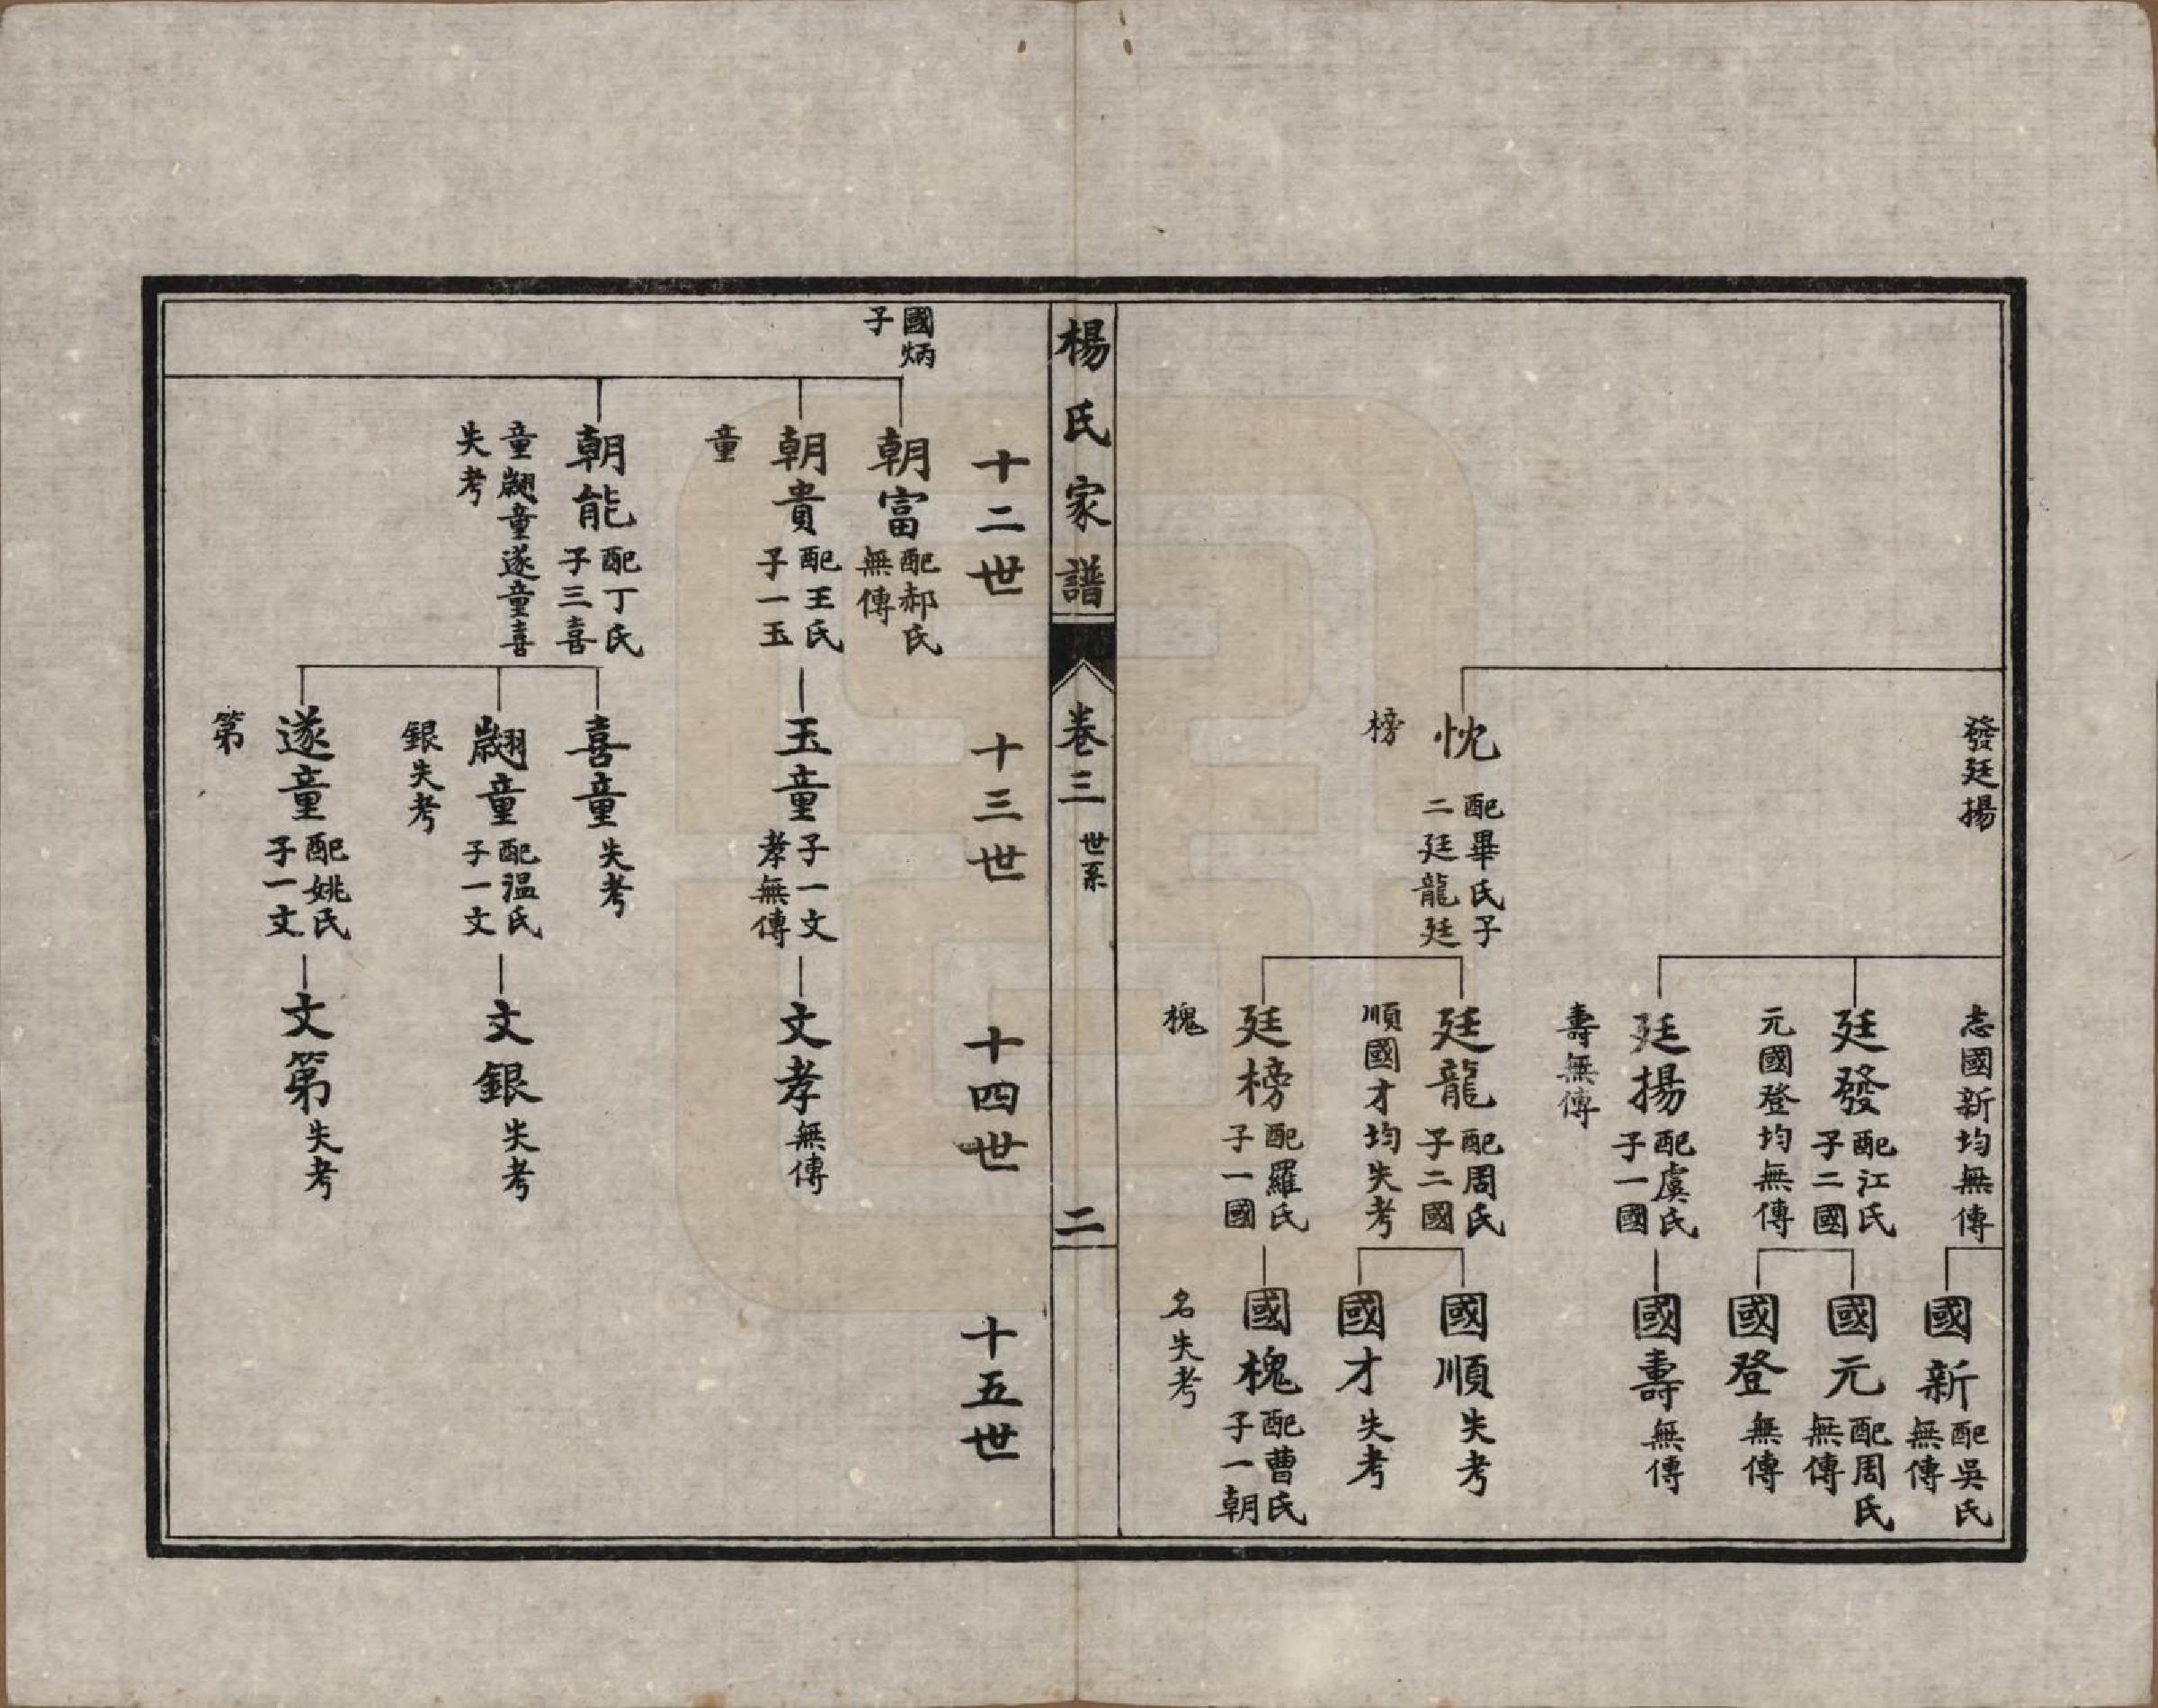 發廷揚
忱 配畢氏子
二廷龍廷
榜
志國新均無傳
廷發 配江氏
子二國
元國登均無傳
廷揚 配虞氏
子一國
壽無傳
廷龍 配周氏
子二國
順國才均失考
廷榜 配羅氏
子一國
槐
國新 配吳氏
無傳
國元 配周氏
無傳
國登 無傳
國壽 無傳
國順 失考
國才 失考
國槐 配曹氏
子一朝
名失考
楊氏家譜 卷三 世系 二
十二世 十三世 十四世 十五世
國炳
子
朝富 配郝氏
無傳
朝貴 配王氏
子一玉
童
朝能 配丁氏
子三喜
童翽童遂童喜
失考
玉童 子一文
孝無傳
喜童 失考
翽童 配温氏
子一文
銀失考
遂童 配姚氏
子一文
第
文孝 無傳
文銀 失考
文第 失考